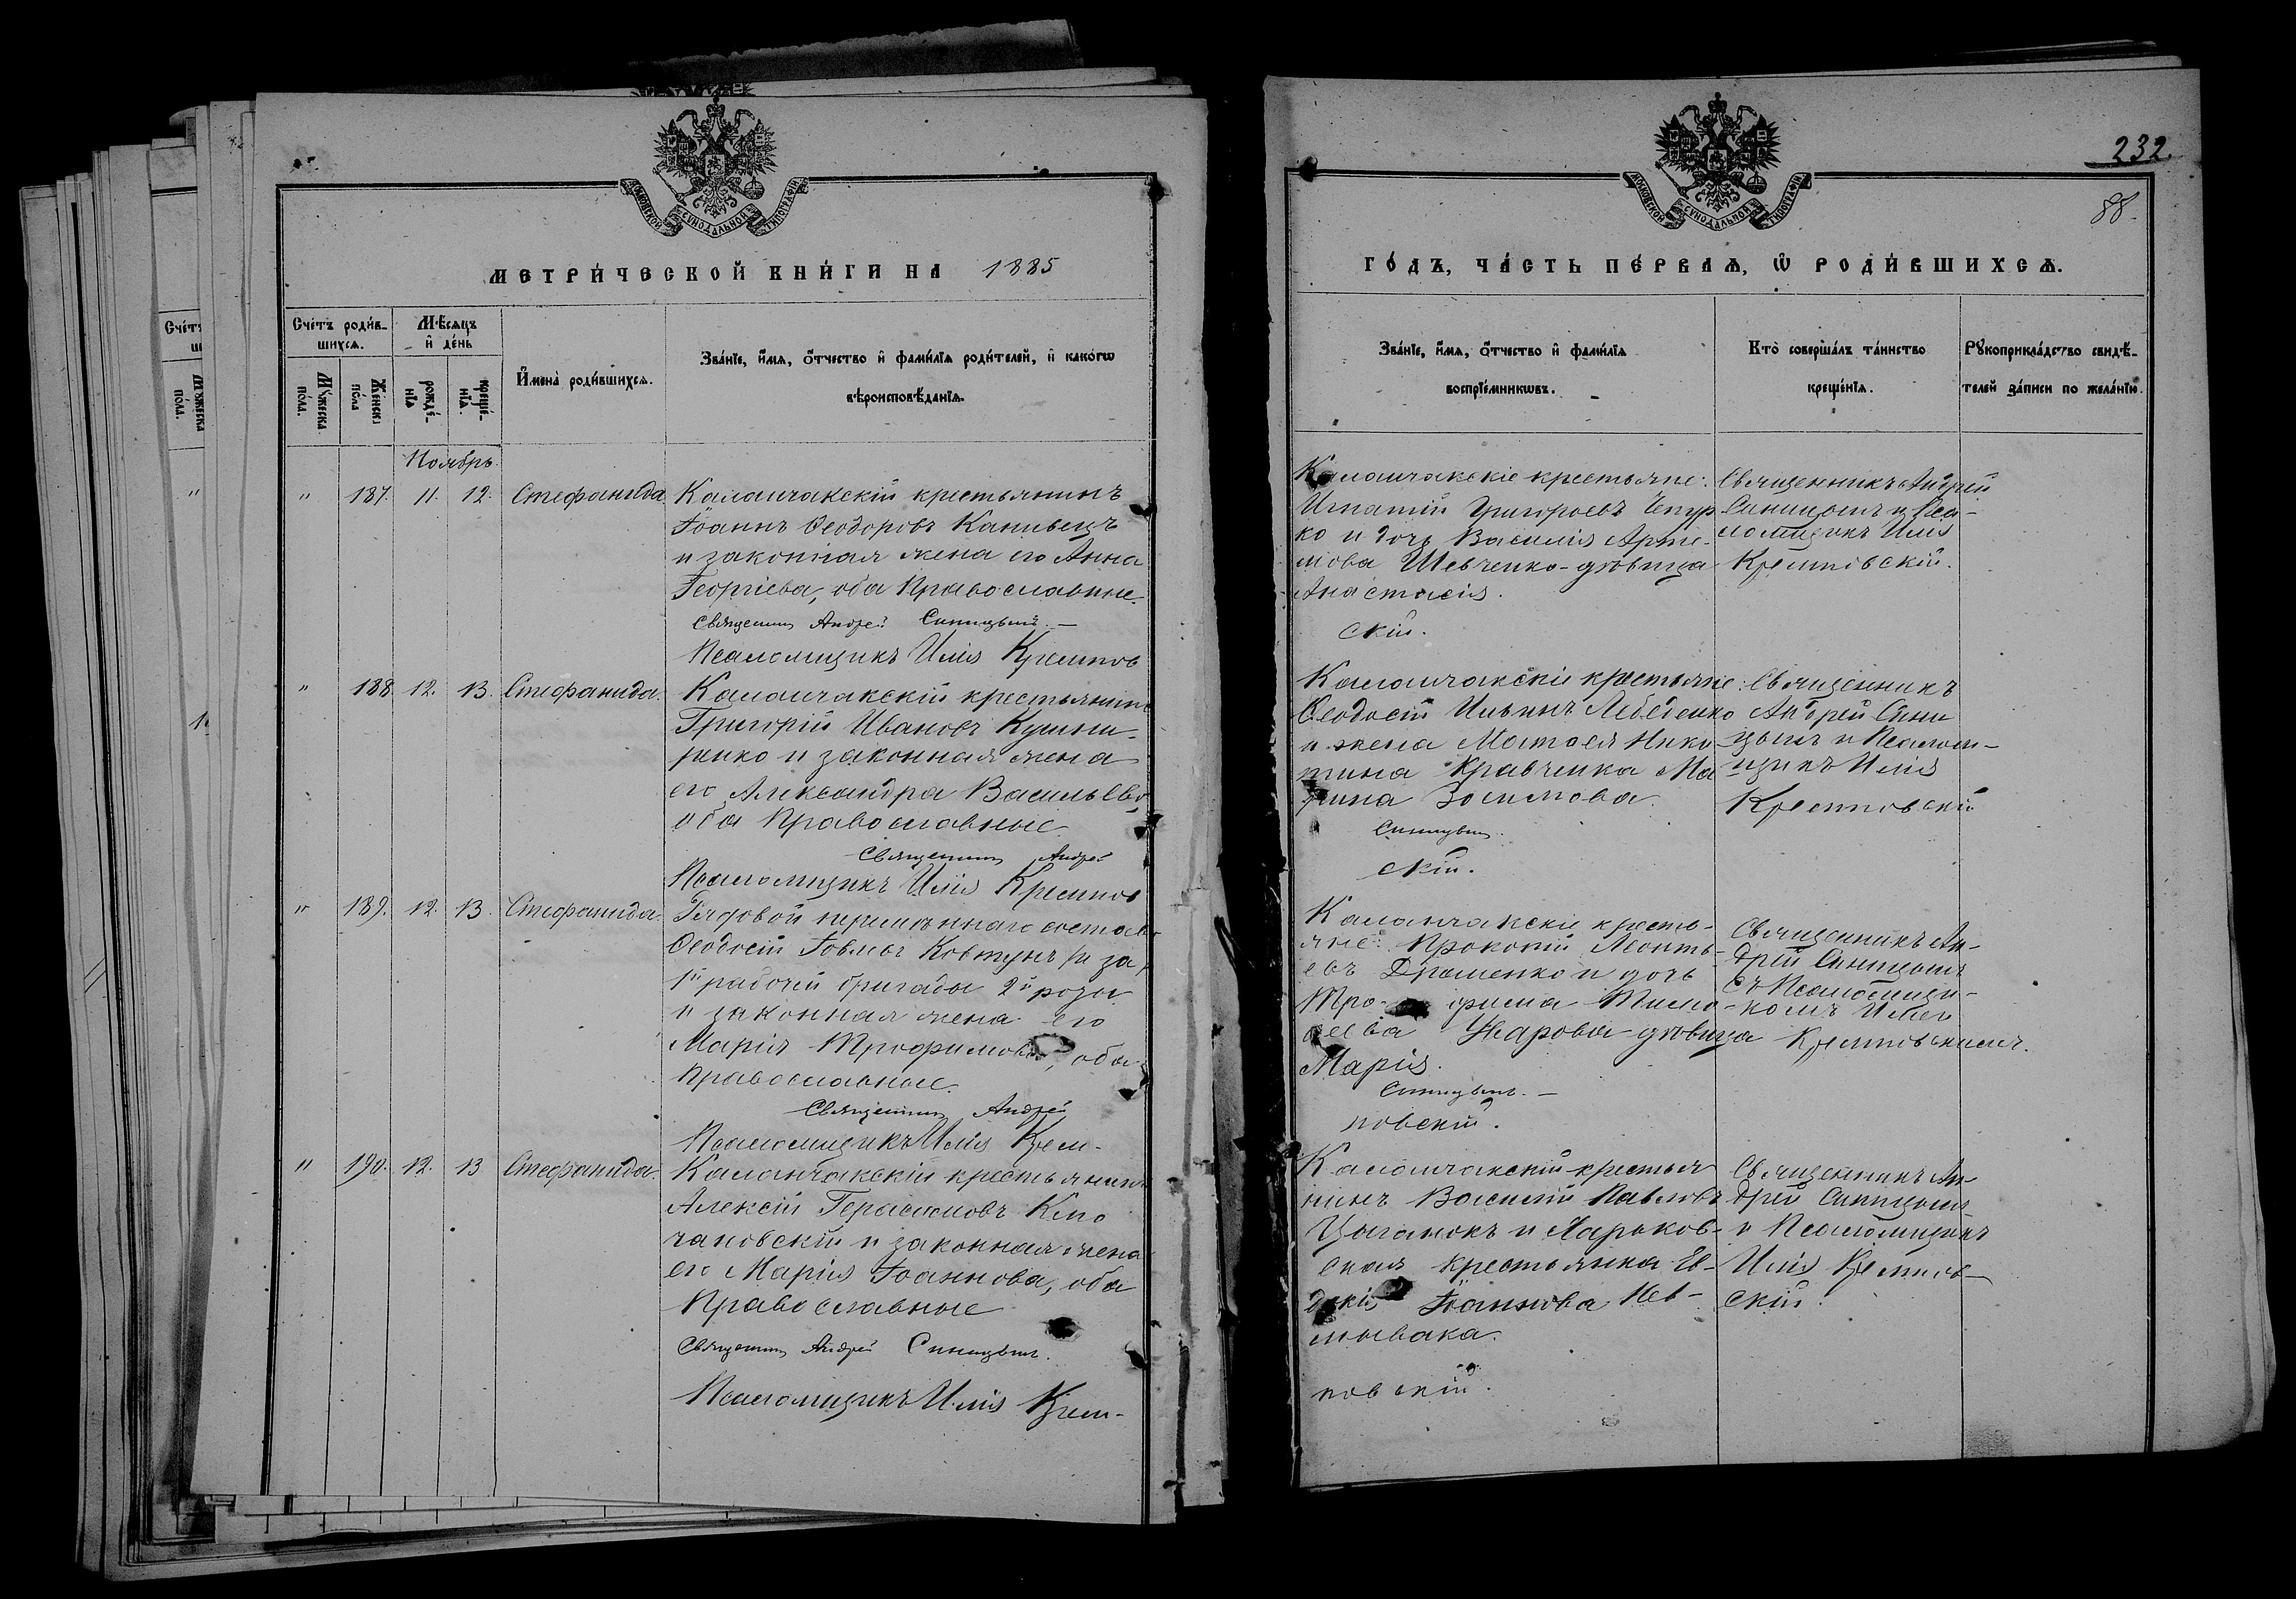 МОСКОВСКОЙ СѴНОДАЛЬНОЙ ТИПОГРАФІИ
МЕТРИЧЕСКОЙ КНИГИ НА 1885
Счетъ родив-
шихся.
Мѣсяцъ
и день
Имена родившихся.
Званіе, имя, отчество и фамилія родителей, и какогѡ
вѣроисповѣданія.
Мужеска
пола.
Женска
пола
рожде-
нія
креще-
нія.
Ноябрь.
" 187. 11. 12. Стефанида
Каланчакскій крестьянинъ
Іоаннъ Ѳеодоровъ Канивецъ
и законная жена его Анна
Георгіева, оба Православные.
Священникъ Андрей Синицынъ. —
Псаломщикъ Илія Кремнов
" 188. 12. 13. Стефанида.
Каланчакскій крестьянинъ
Григорій Ивановъ Кушни-
ренко и законная жена
его Александра Васильева,
оба Православные.
Священникъ Андрей
Псаломщикъ Илія Кремнов
" 189. 12. 13. Стефанида.
Рядовой перемѣннаго состава
Ѳеодосій Іовлевъ Ковтунъ /и за/
1й рабочей бригады 2й роты
и законная жена его
Марія Трофимова, оба
православные.
Священникъ Андрей
Псаломщикъ Илія Крем-
" 190. 12. 13 Стефанида.
Каланчакскій крестьянинъ
Алексій Герасимовъ
чановскій и законная жена
его Марія Іоаннова, оба
Православные
Священникъ Андрей Синицынъ.
Псаломщикъ Илія Крем-
232.
88.
МОСКОВСКОЙ СѴНОДАЛЬНОЙ ТИПОГРАФІИ
ГОДЪ, ЧАСТЬ ПЕРВАЯ, Ѡ РОДИВШИХСЯ.
Званіе, имя, отчество и фамилія
воспріемникωвъ.
Кто совершалъ таинство
крещенія.
Рукоприкладство свидѣ-
телей записи по желанію.
Каланчакскіе крестьяне:
Игнатій Григорьевъ Чепур
ко и дочь Василія Арте-
мова Шевченко-дѣвица
Анастасія.
Священникъ Андрей
Синицынъ и Пса-
ломщикъ Илія
Кремновскій.
скій.
Каланчакскіе крестьяне:
Ѳеодосій Ильинъ Лебеденко
и жена Матвея Ники-
тина Кравченка Ма
рина Зосимова.
Священникъ
Андрей Сини
цынъ и Псалом-
щикъ Илія
Кремновскій
Синицынъ.
скій.
Каланчакскіе кресть-
яне: Прокопій Леонть-
евъ Драменко и дочь
Тро- фима Тимо-
ѳеева Уварова-дѣвица
Марія.
Священникъ Ан-
дрей Синицынъ
съ Псаломщи-
комъ Иліею
Кремновскимъ.
Синицынъ. —
новскій.
Каланчакскій крестья
нинъ Василій Павловъ
Цыганокъ и Харьков-
ская крестьянка Ев-
докія Іоаннова Нев-
мывака.
Священникъ Ан
дрей Синицынъ
и Псаломщикъ
Илія Кремнов-
скій.
новскій.